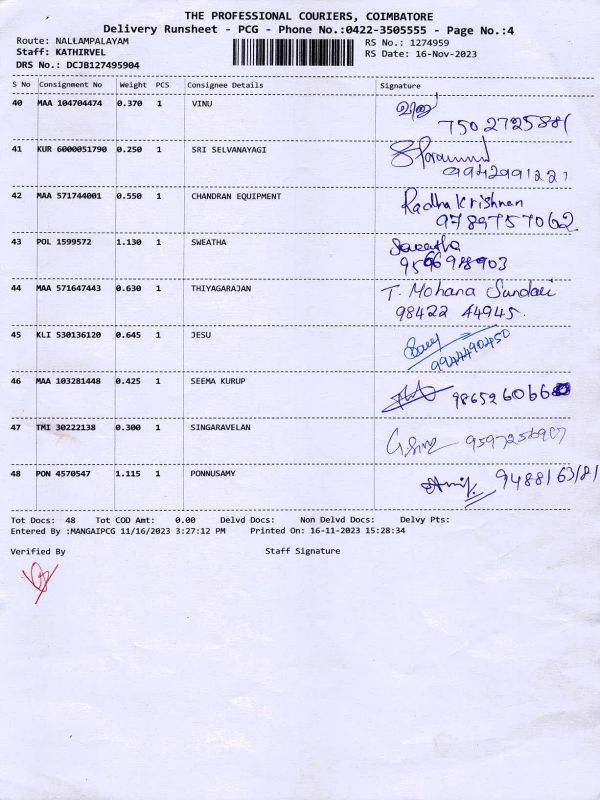 THE PROFESSIONAL COURIERS, COIMBATORE
Delivery Runsheet - PCG - Phone No.:0422-3505555 - Page No.:4
Route: NALLAMPALAYAM
Staff: KATHIRVEL
DRS No.: DCJB127495904
RS No.: 1274959
RS Date: 16-Nov-2023
S No Consignment No Weight PCS Consignee Details Signature
40 MAA 104704474 0.370 1 VINU
7502725881
41 KUR 6000051790 0.250 1 SRI SELVANAYAGI
9942991221
42 MAA 571744001 0.550 1 CHANDRAN EQUIPMENT Radha Krishnan
9789757062
43 POL 1599572 1.130 1 SWEATHA
44 MAA 571647443 0.630 1 THIYAGARAJAN T. Mohana Sundari
98422 44945.
45 KLI 530136120 0.645 1 JESU
9944490450
46 MAA 103281448 0.425 1 SEEMA KURUP
47 TMI 30222138 0.300 1 SINGARAVELAN
48 PON 4570547 1.115 1 PONNUSAMY
9488163181
Tot Docs: 48 Tot COD Amt: 0.00 Delvd Docs: Non Delvd Docs: Delvy Pts:
Entered By :MANGAIPCG 11/16/2023 3:27:12 PM Printed On: 16-11-2023 15:28:34
Verified By Staff Signature